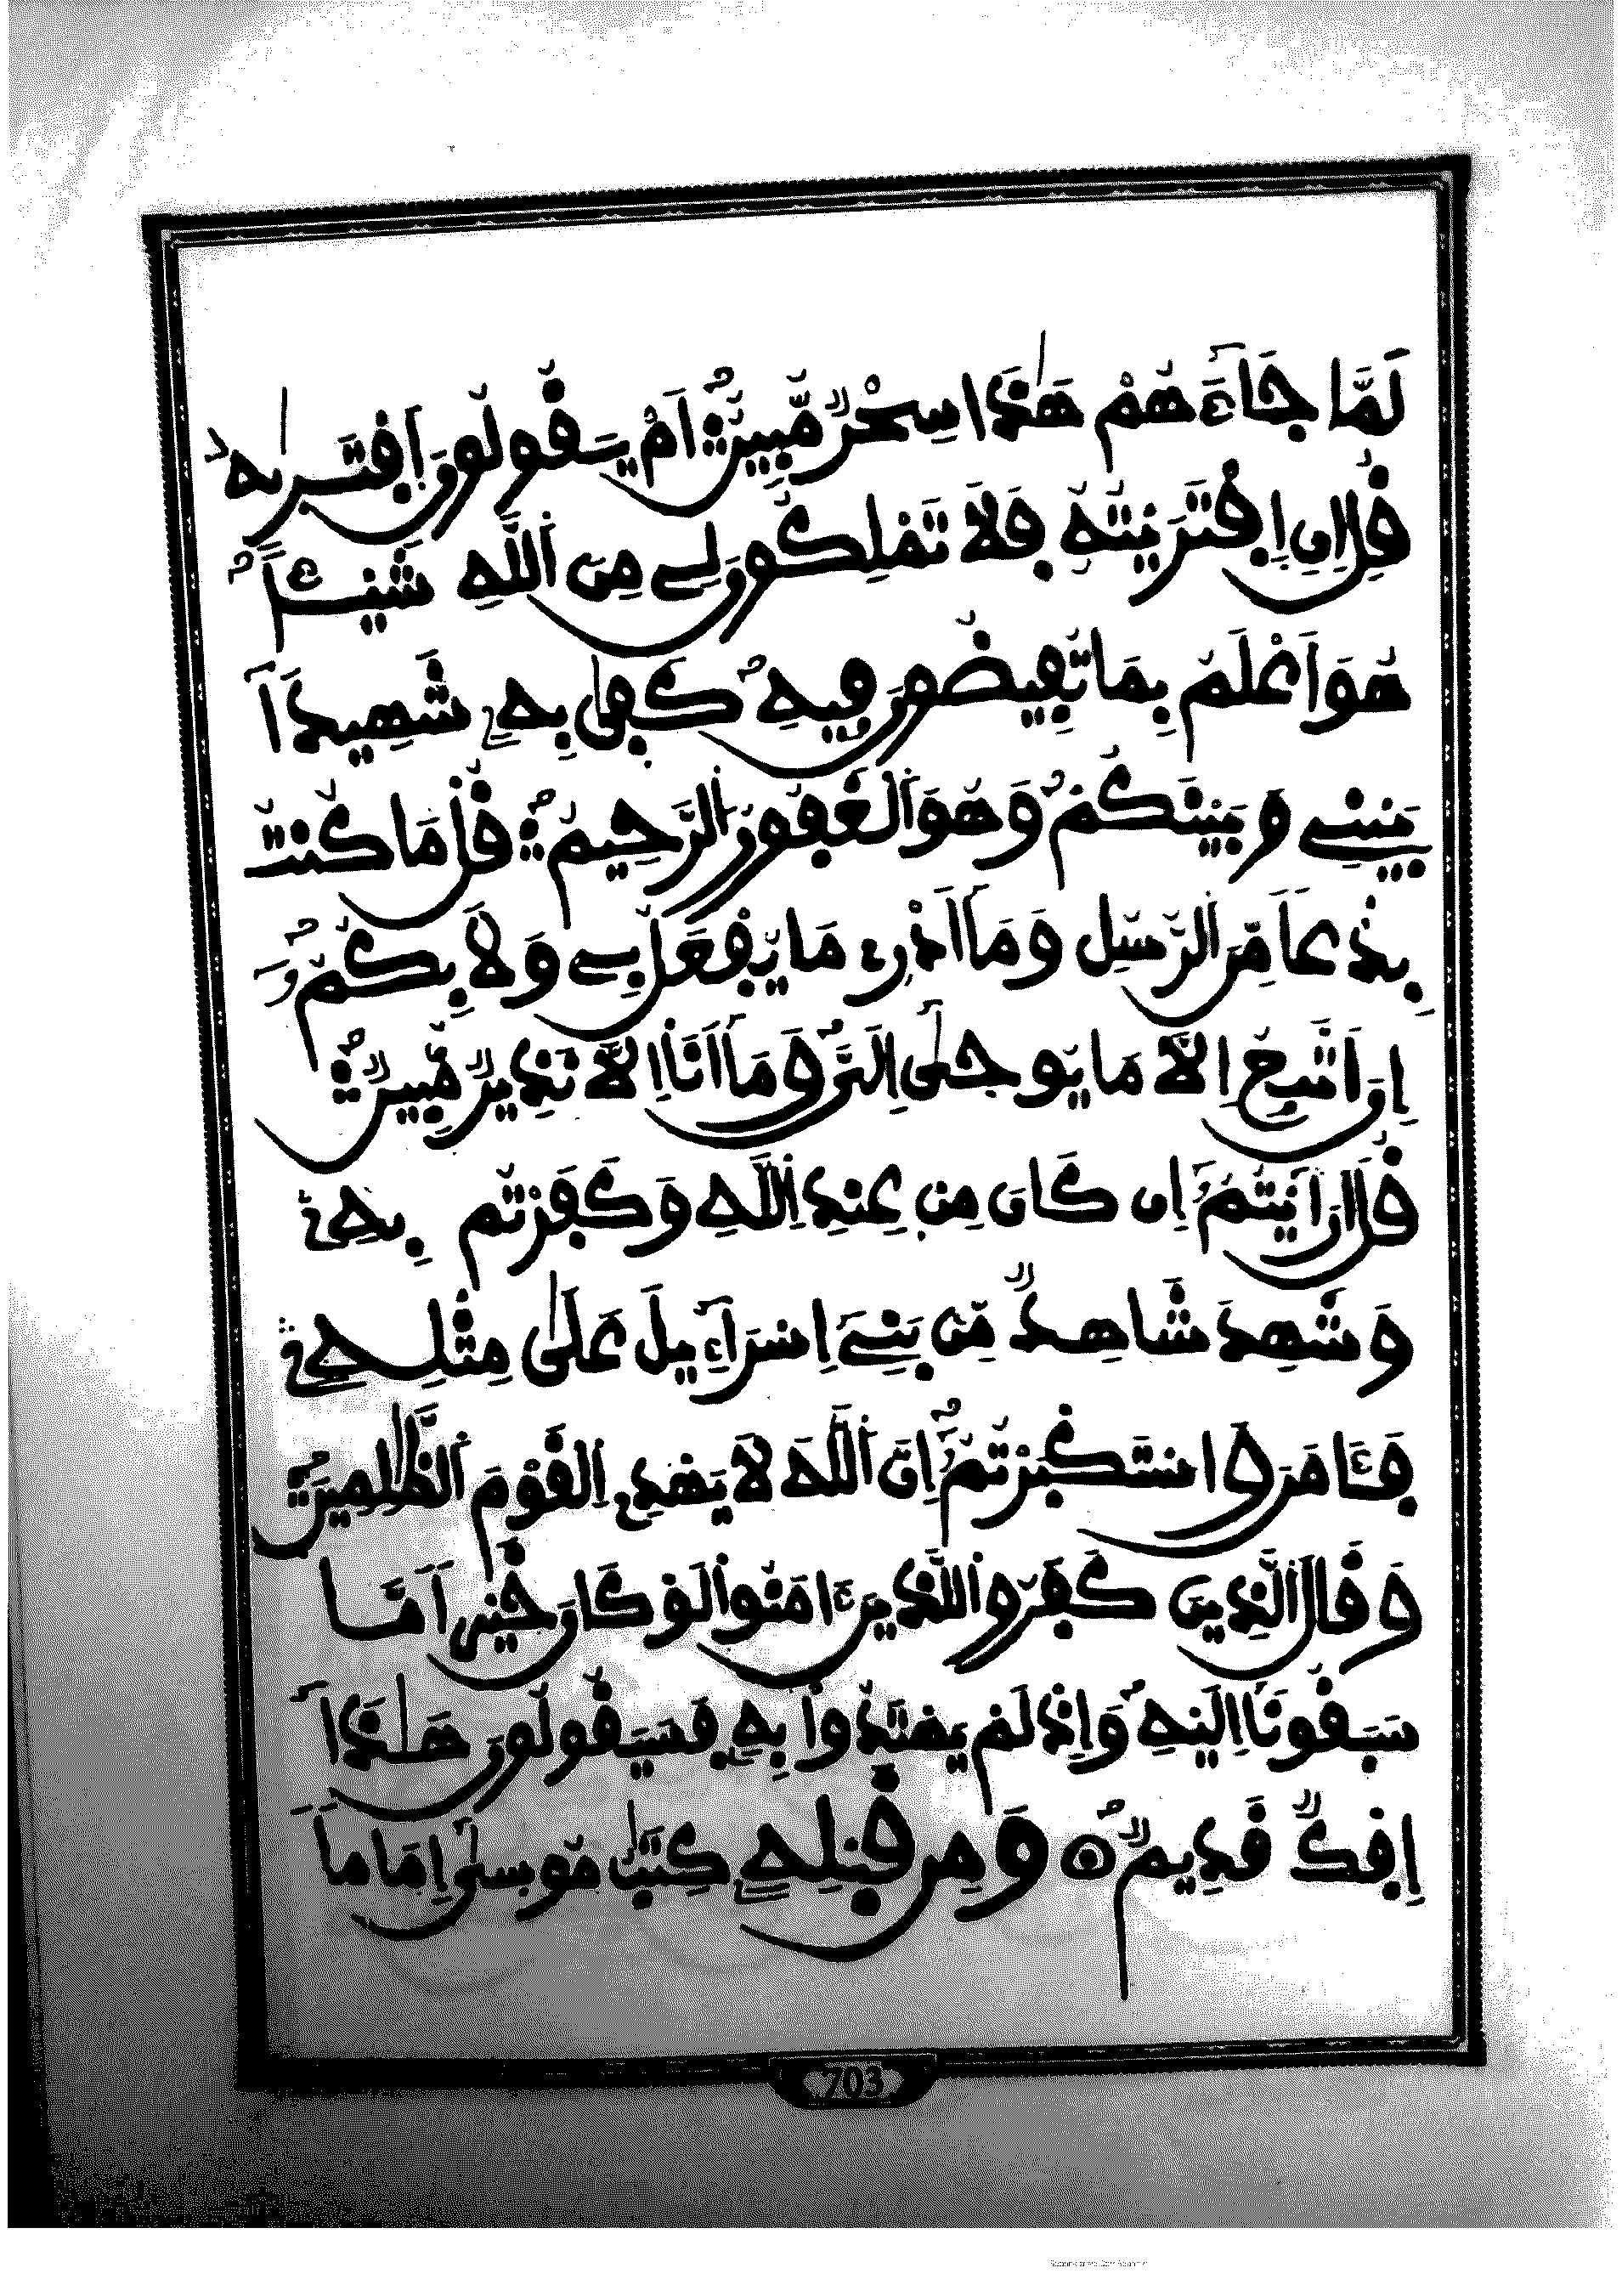 لَمَّا جَآءَهُمْ هَٰذَا سِحْرٌ مُّبِينٌ اَمْ يَقُولُونَ اَفْتَرَىٰهُ
قُلِ اِنِ اِفْتَرَيْتُهُ فَلَا تَمْلِكُونَ لِے مِنَ اَللَّهِ شَيْـًٔا
هُوَ أَعْلَمُ بِمَا تُفِيضُونَ فِيهِ كَفَىٰ بِهِۦ شَهِيداَۢ
بَيْنِے وَبَيْنَكُمْ وَهُوَ اَلْغَفُورُ اُلرَّحِيمُ قُلْ مَا كُنتُ
بِدْعاً مِّنَ اَلرُّسُلِ وَمَآ أَدْرِے مَا يُفْعَلُ بِے وَلَا بِكُمُۥٓ
إِنَ اَتَّبِعُ إِلَّا مَا يُوحَىٰٓ إِلَيَّ وَمَآ أَنَا إِلَّا نَذِيرٌ مُّبِينٌ
قُلَ اَرَٰيْتُمُۥٓ إِن كَانَ مِنْ عِندِ اِللَّهِ وَكَفَرْتُم بِهِۦ
وَشَهِدَ شَاهِدٌ مِّنۢ بَنِےٓ إِسْرَآءِيلَ عَلَىٰ مِثْلِهِۦ
فَـَٔامَنَ وَاسْتَكْبَرْتُمُۥٓ إِنَّ اَللَّهَ لَا يَهْدِے اِلْقَوْمَ اَلظَّٰلِمِينَ
وَقَالَ اَلذِينَ كَفَرُواْ لِلذِينَ ءَامَنُواْ لَوْ كَانَ خَيْراً مَّا
سَبَقُونَآ إِلَيْهِ وَإِذْ لَمْ يَهْتَدُواْ بِهِۦ فَسَيَقُولُونَ هَٰذَآ
إِفْكٌ قَدِيمٌ وَمِن قَبْلِهِۦ كِتَٰبُ مُوسَىٰٓ إِمَاماً
703